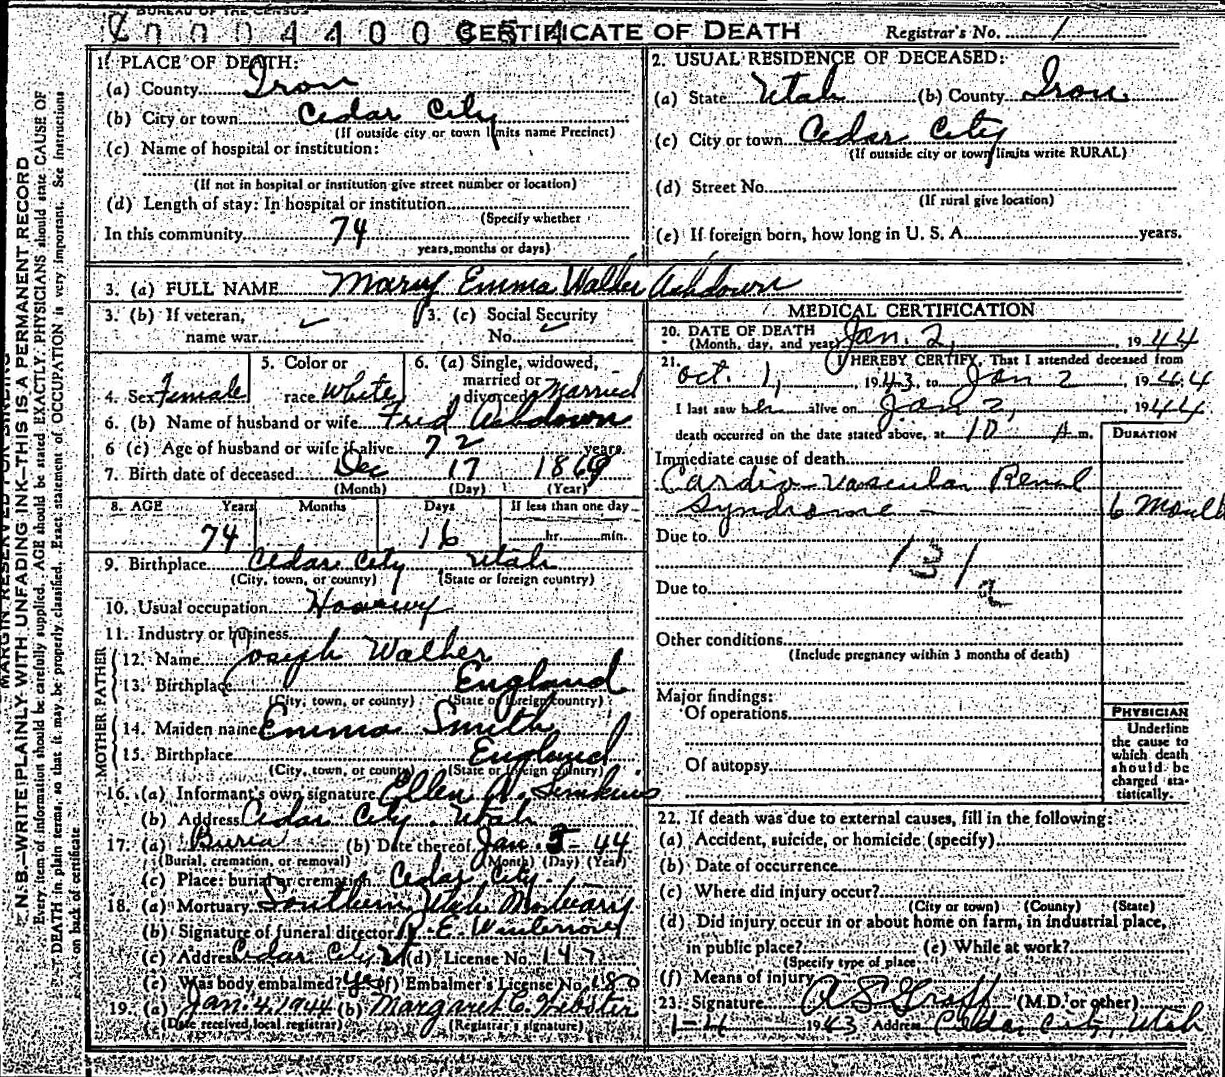 BUREAU OF THE CENSUS
CERTIFICATE OF DEATH
Registrar's No. 1
MARGIN RESERVED FOR BINDING
N. B.—WRITE PLAINLY WITH UNFADING INK—THIS IS A PERMANENT RECORD
Every item of information should be carefully supplied. AGE should be stated EXACTLY. PHYSICIANS should state CAUSE OF
DEATH in plain terms, so that it may be properly classified. Exact statement of OCCUPATION is very important. See Instructions
on back of certificate.
1. PLACE OF DEATH:
(a) County Iron
(b) City or town Cedar City
(If outside city or town limits name Precinct)
(c) Name of hospital or institution:
(If not in hospital or institution give street number or location)
(d) Length of stay: In hospital or institution
(Specify whether
In this community 74
years, months or days)
2. USUAL RESIDENCE OF DECEASED:
(a) State Utah (b) County Iron
(c) City or town Cedar City
(If outside city or town limits write RURAL)
(d) Street No.
(If rural give location)
(e) If foreign born, how long in U. S. A. years.
3. (a) FULL NAME Mary Emma Walker Ashdown
3. (b) If veteran, 3. (c) Social Security
name war No.
4. Sex Female 5. Color or race White 6. (a) Single, widowed, married or divorced Married
6. (b) Name of husband or wife Fred Ashdown
6 (c) Age of husband or wife if alive 72 years
7. Birth date of deceased Dec 17 1869
(Month) (Day) (Year)
8. AGE Years Months Days If less than one day
74 16 hr. min.
9. Birthplace Cedar City Utah
(City, town, or county) (State or foreign country)
10. Usual occupation
11. Industry or business
FATHER
12. Name Joseph Walker
13. Birthplace England
(City, town, or county) (State or foreign country)
MOTHER
14. Maiden name Emma Smith
15. Birthplace England
(City, town, or county) (State or foreign country)
16. (a) Informant's own signature Ellen A. Simkins
(b) Address Cedar City, Utah
17. (a) Buria (b) Date thereof Jan. 5-44
(Burial, cremation, or removal) (Month) (Day) (Year)
(c) Place: burial or cremation Cedar City.
18. (a) Mortuary Southern Utah Mortuary
(b) Signature of funeral director
(c) Address Cedar City, U (d) License No. 147
(e) Was body embalmed? Yes (f) Embalmer's License No. 180
19. (a) Jan. 4, 1944 (b) Margaret C. Webster
(Date received local registrar) (Registrar's signature)
MEDICAL CERTIFICATION
20. DATE OF DEATH
(Month, day, and year) Jan. 2, 1944
21. I HEREBY CERTIFY, That I attended deceased from
Oct. 1, 1943, to Jan 2 1944
I last saw her alive on Jan 2, 1944
death occurred on the date stated above, at 10 A m.
DURATION
Immediate cause of death
Cardio-vascular Renal
Syndrome 6 Month
Due to
131a
Due to
Other conditions
(Include pregnancy within 3 months of death)
Major findings:
Of operations
Of autopsy
PHYSICIAN
Underline
the cause to
which death
should be
charged sta-
tistically.
22. If death was due to external causes, fill in the following:
(a) Accident, suicide, or homicide (specify)
(b) Date of occurrence
(c) Where did injury occur?
(City or town) (County) (State)
(d) Did injury occur in or about home on farm, in industrial place,
in public place? (e) While at work?
(Specify type of place
(f) Means of injury
23. Signature A S Graff (M.D. or other)
1-4 1943 Address Cedar City, Utah